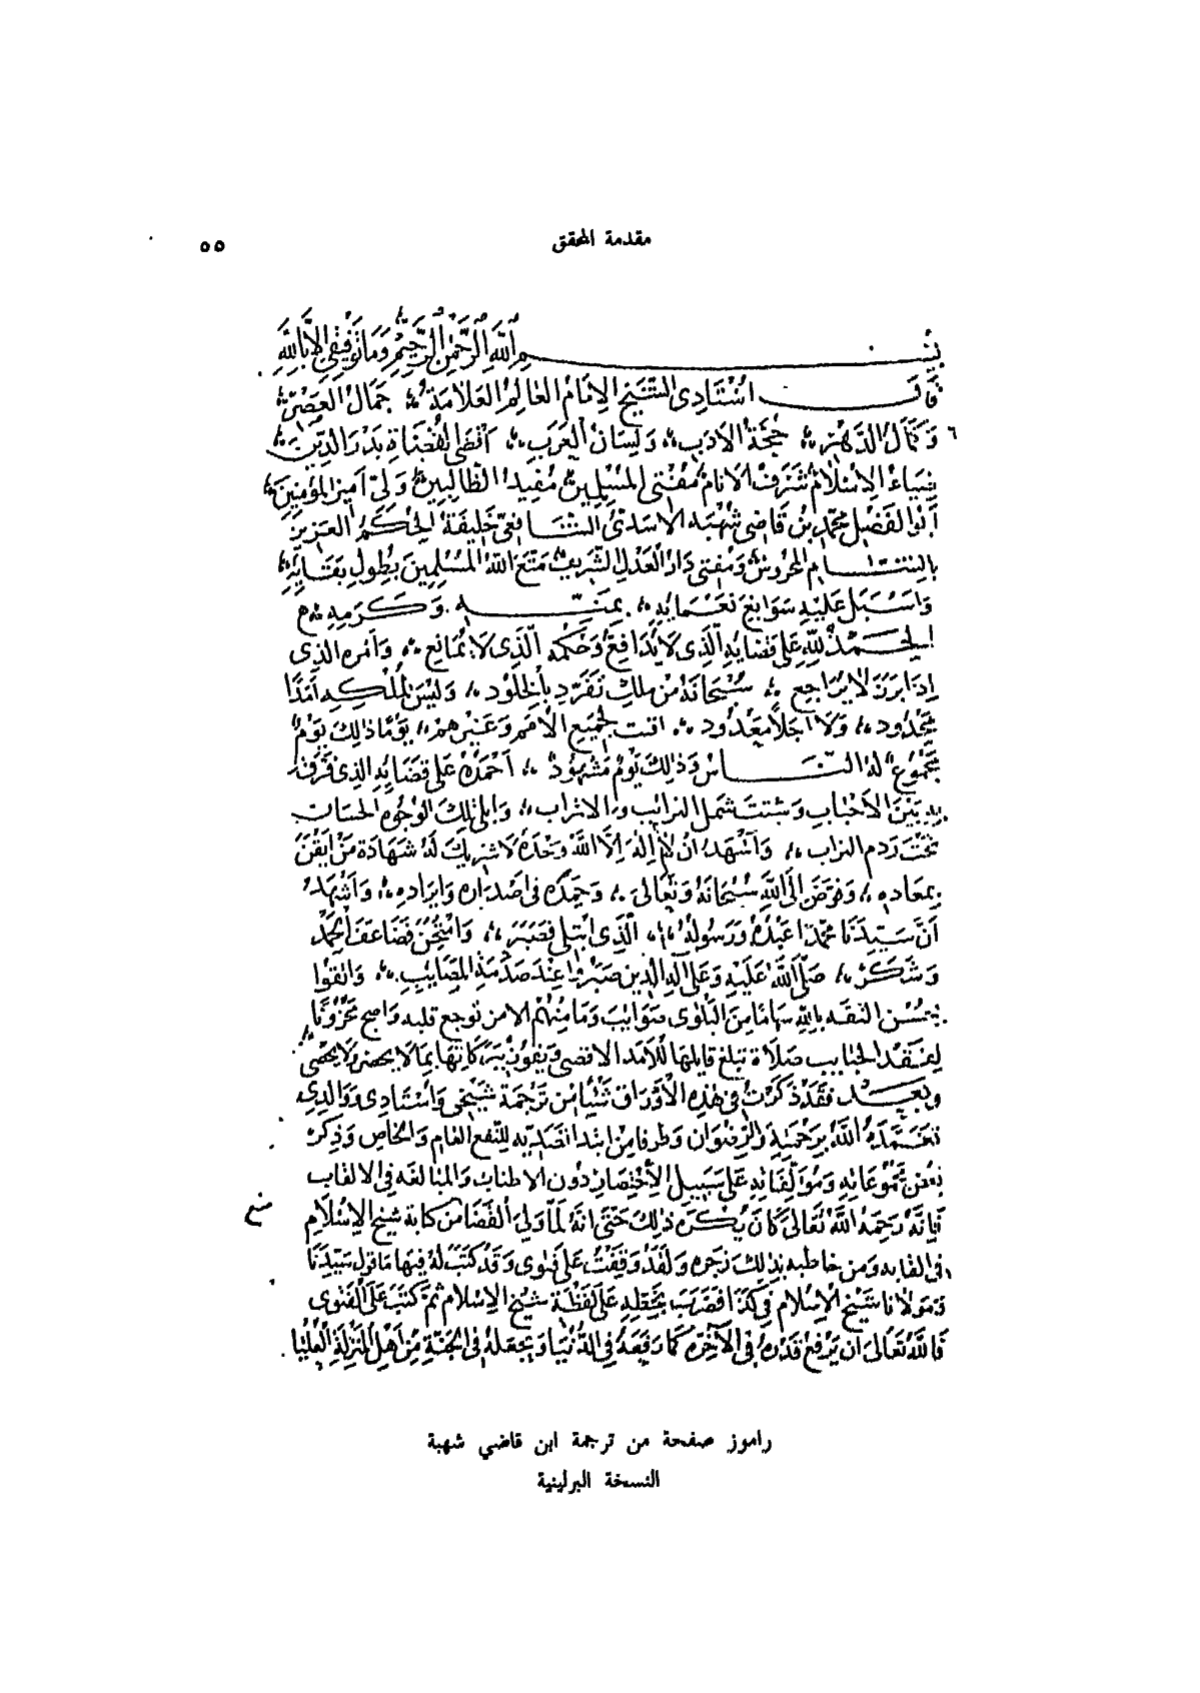 مقدمة المحقق
٥٥
بسم الله الرحمن الرحيم وما توفيقي إلا بالله
قال أستادي الشيخ الإمام العالم العلامة جمال العصر
وكمال الدهر حجة الأدب ولسان العرب أقضى القضاة بدر الدين
ضياء الإسلام شرف الأنام مفتي المسلمين مفيد الطالبين ولي أمير المؤمنين
أبو الفضل محمد بن قاضي شهبه الأسدي الشافعي خليفة الحكم العزيز
بالشام المحروس ومفتي دار العدل الشريف متع الله المسلمين بطول بقائه
وأسبل عليه سوابغ نعمائه بمنه وكرمه
الحمد لله على قضايه الذي لا يدافع وحكمه الذي لا يمانع وأمره الذي
إذا برز لا يراجع سبحانه من ملك تفرد بالخلود وليس لملكه أمدا
محدود ولا أجلا معدود لجميع الأمم وغيرهم يوما ذلك يوم
مجموع له الناس وذلك يوم مشهود أحمده على قضايه الذي فرق
به بين الأحباب وشتت شمل الترايب والاتراب وابلى تلك الوجوه الحسان
تحت ردم التراب وأشهد أن لا إله إلا الله وحده لا شريك له شهادة من أيقن
بمعاده وفوض إلى الله سبحانه وتعالى وحمده في اصداره وايراده وأشهد
أن سيدنا محمدا عبده ورسوله الذي ابتلي فصبر وامتحن فضاعف الحمد
وشكر صلى الله عليه وعلى آله الذين صبروا عند صدمة المصايب والقوا
بحسن الثقه بالله سهاما من البلوى صوايب وما منهم الا من توجع قلبه واصبح محزونا
لفقد الحبايب صلاة تبلغ قايلها للأمد الاقصى ويفوز ببركاتها بما لا يحصر ولا يحصى
وبعد فقد ذكرت في هذه الأوراق شيئا من ترجمة شيخي وأستادي ووالدي
تغمده الله برحمته والرضوان وطرفا من ابتدا تصديه للنفع العام والخاص وذكر
بعض مجموعاته ومؤلفاته على سبيل الاختصار دون الاطناب والمبالغه في الالقاب
فإنه رحمه الله تعالى كان يكره ذلك حتى انه لما ولي القضا من كتابة شيخ الإسلام
في القابه ومن خاطبه بذلك زجره ولقد وقفت على فتوى وقد كتب له فيها ما قول سيدنا
ومولانا شيخ الإسلام في كذا فضرب بخطه على لفظة شيخ الإسلام ثم كتب على الفتوى
فالله تعالى ان يرفع قدره في الآخره كما رفعه في الدنيا ويجعله في الجنة من أهل المنزلة العليا
راموز صفحة من ترجمة ابن قاضي شهبة
النسخة البرلينية